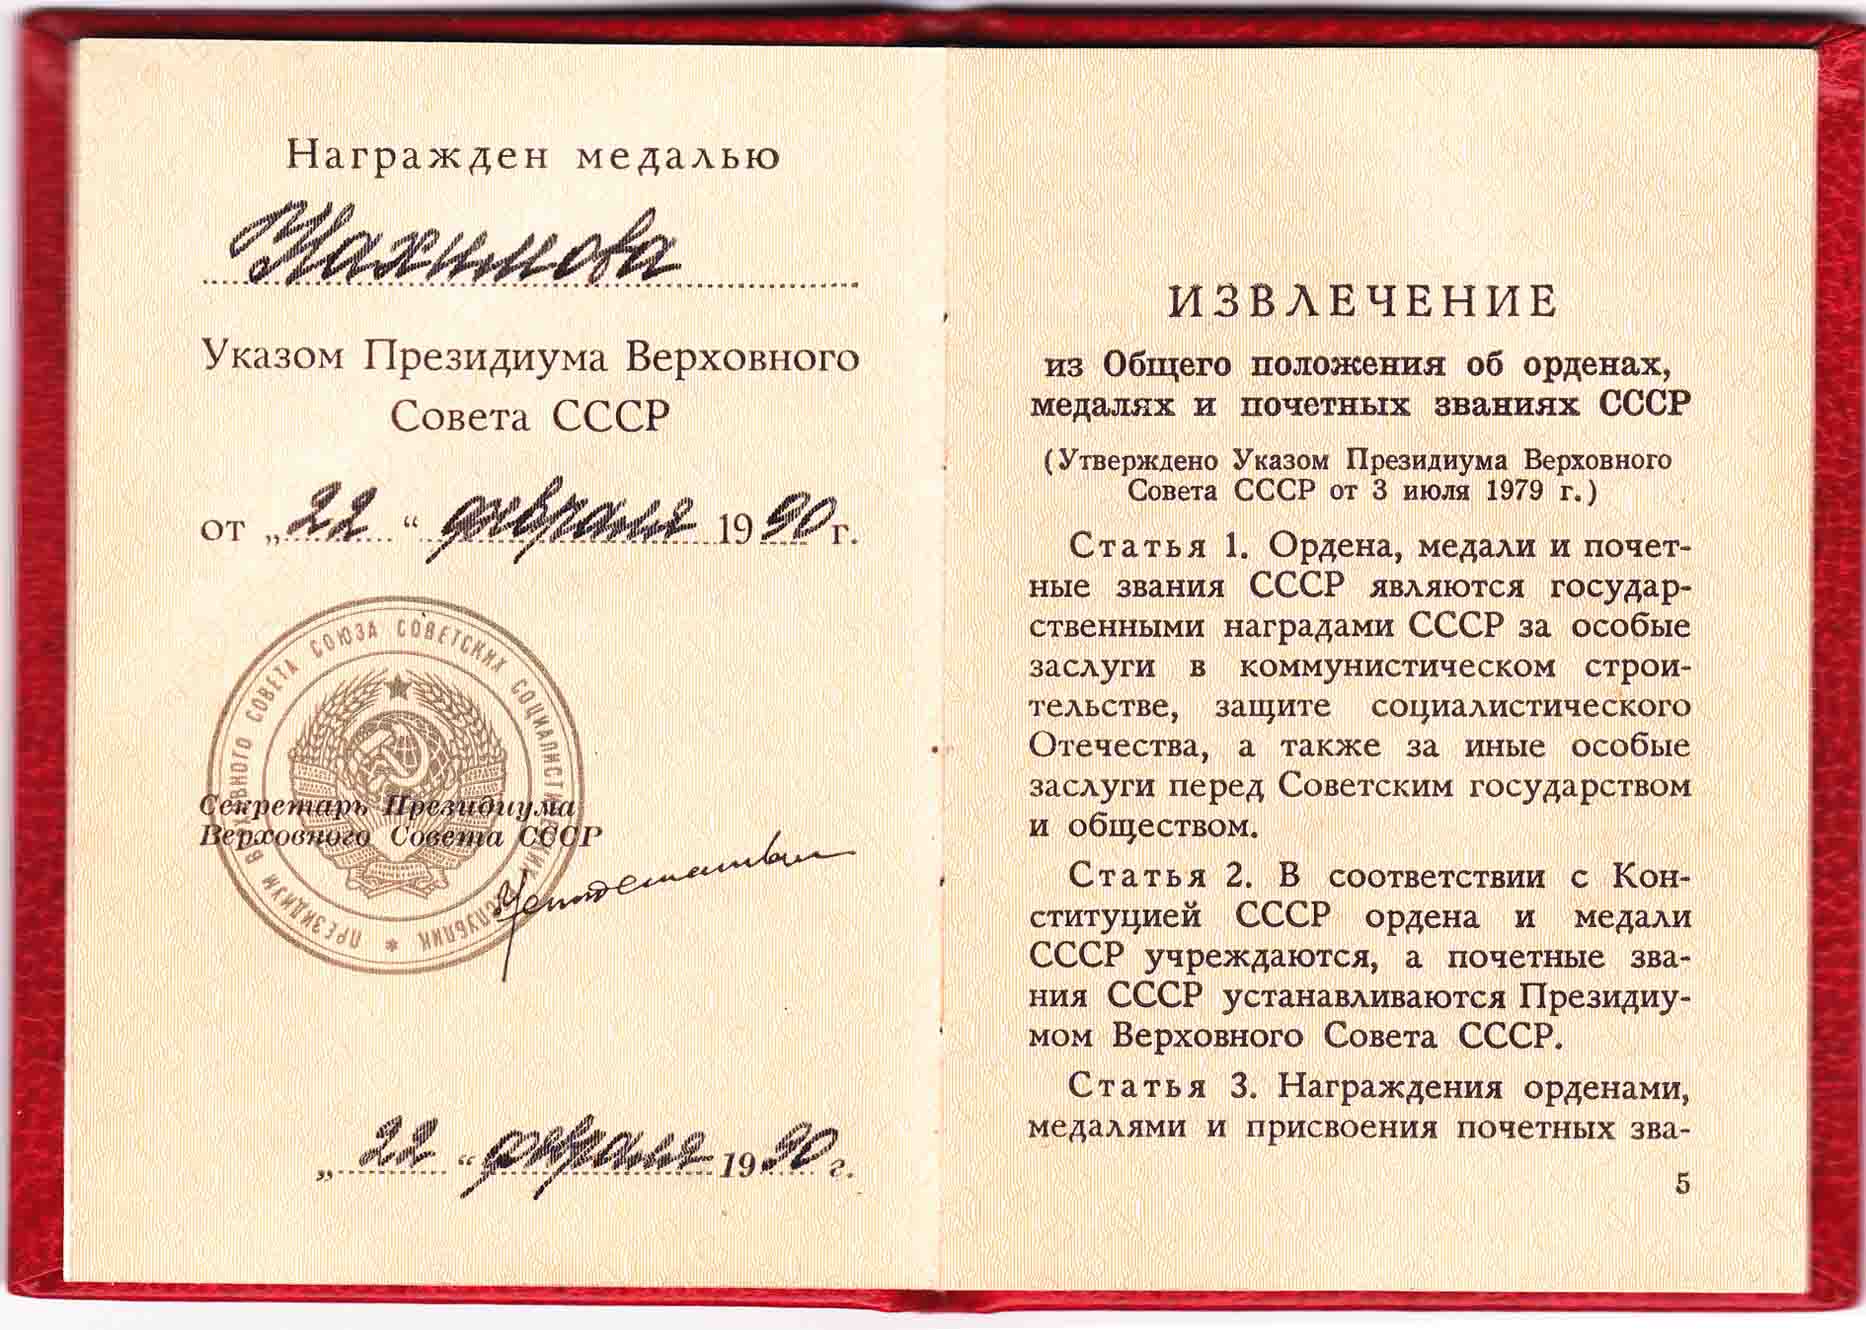 Награжден медалью
Нахимова
Указом Президиума Верховного
Совета СССР
от „22“ февраля 1990 г.
ПРЕЗИДИУМ ВЕРХОВНОГО СОВЕТА СОЮЗА СОВЕТСКИХ СОЦИАЛИСТИЧЕСКИХ РЕСПУБЛИК *
Секретарь Президиума
Верховного Совета СССР
„22“ февраля 1990 г.
ИЗВЛЕЧЕНИЕ
из Общего положения об орденах,
медалях и почетных званиях СССР
(Утверждено Указом Президиума Верховного
Совета СССР от 3 июля 1979 г.)
Статья 1. Ордена, медали и почет-
ные звания СССР являются государ-
ственными наградами СССР за особые
заслуги в коммунистическом строи-
тельстве, защите социалистического
Отечества, а также за иные особые
заслуги перед Советским государством
и обществом.
Статья 2. В соответствии с Кон-
ституцией СССР ордена и медали
СССР учреждаются, а почетные зва-
ния СССР устанавливаются Президиу-
мом Верховного Совета СССР.
Статья 3. Награждения орденами,
медалями и присвоения почетных зва-
5